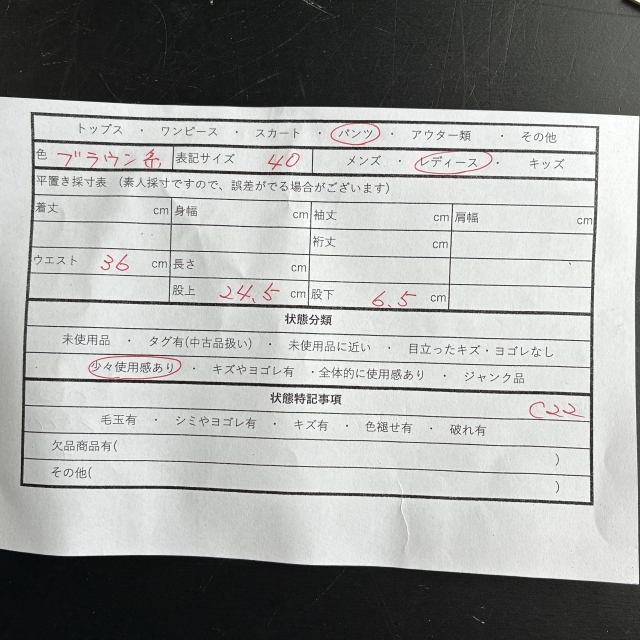 トップス ・ ワンピース ・ スカート ・ パンツ ・ アウター類 ・ その他
色 ブラウン系 表記サイズ 40 メンズ ・ レディース ・ キッズ
平置き採寸表 （素人採寸ですので、誤差がでる場合がございます）
着丈 cm 身幅 cm 袖丈 cm 肩幅 cm
裄丈 cm
ウエスト 36 cm 長さ cm
股上 24.5 cm 股下 6.5 cm
状態分類
未使用品 ・ タグ有(中古品扱い) ・ 未使用品に近い ・ 目立ったキズ・ヨゴレなし
少々使用感あり ・ キズやヨゴレ有 ・全体的に使用感あり ・ ジャンク品
状態特記事項
C22
毛玉有 ・ シミやヨゴレ有 ・ キズ有 ・ 色褪せ有 ・ 破れ有
欠品商品有( )
その他( )